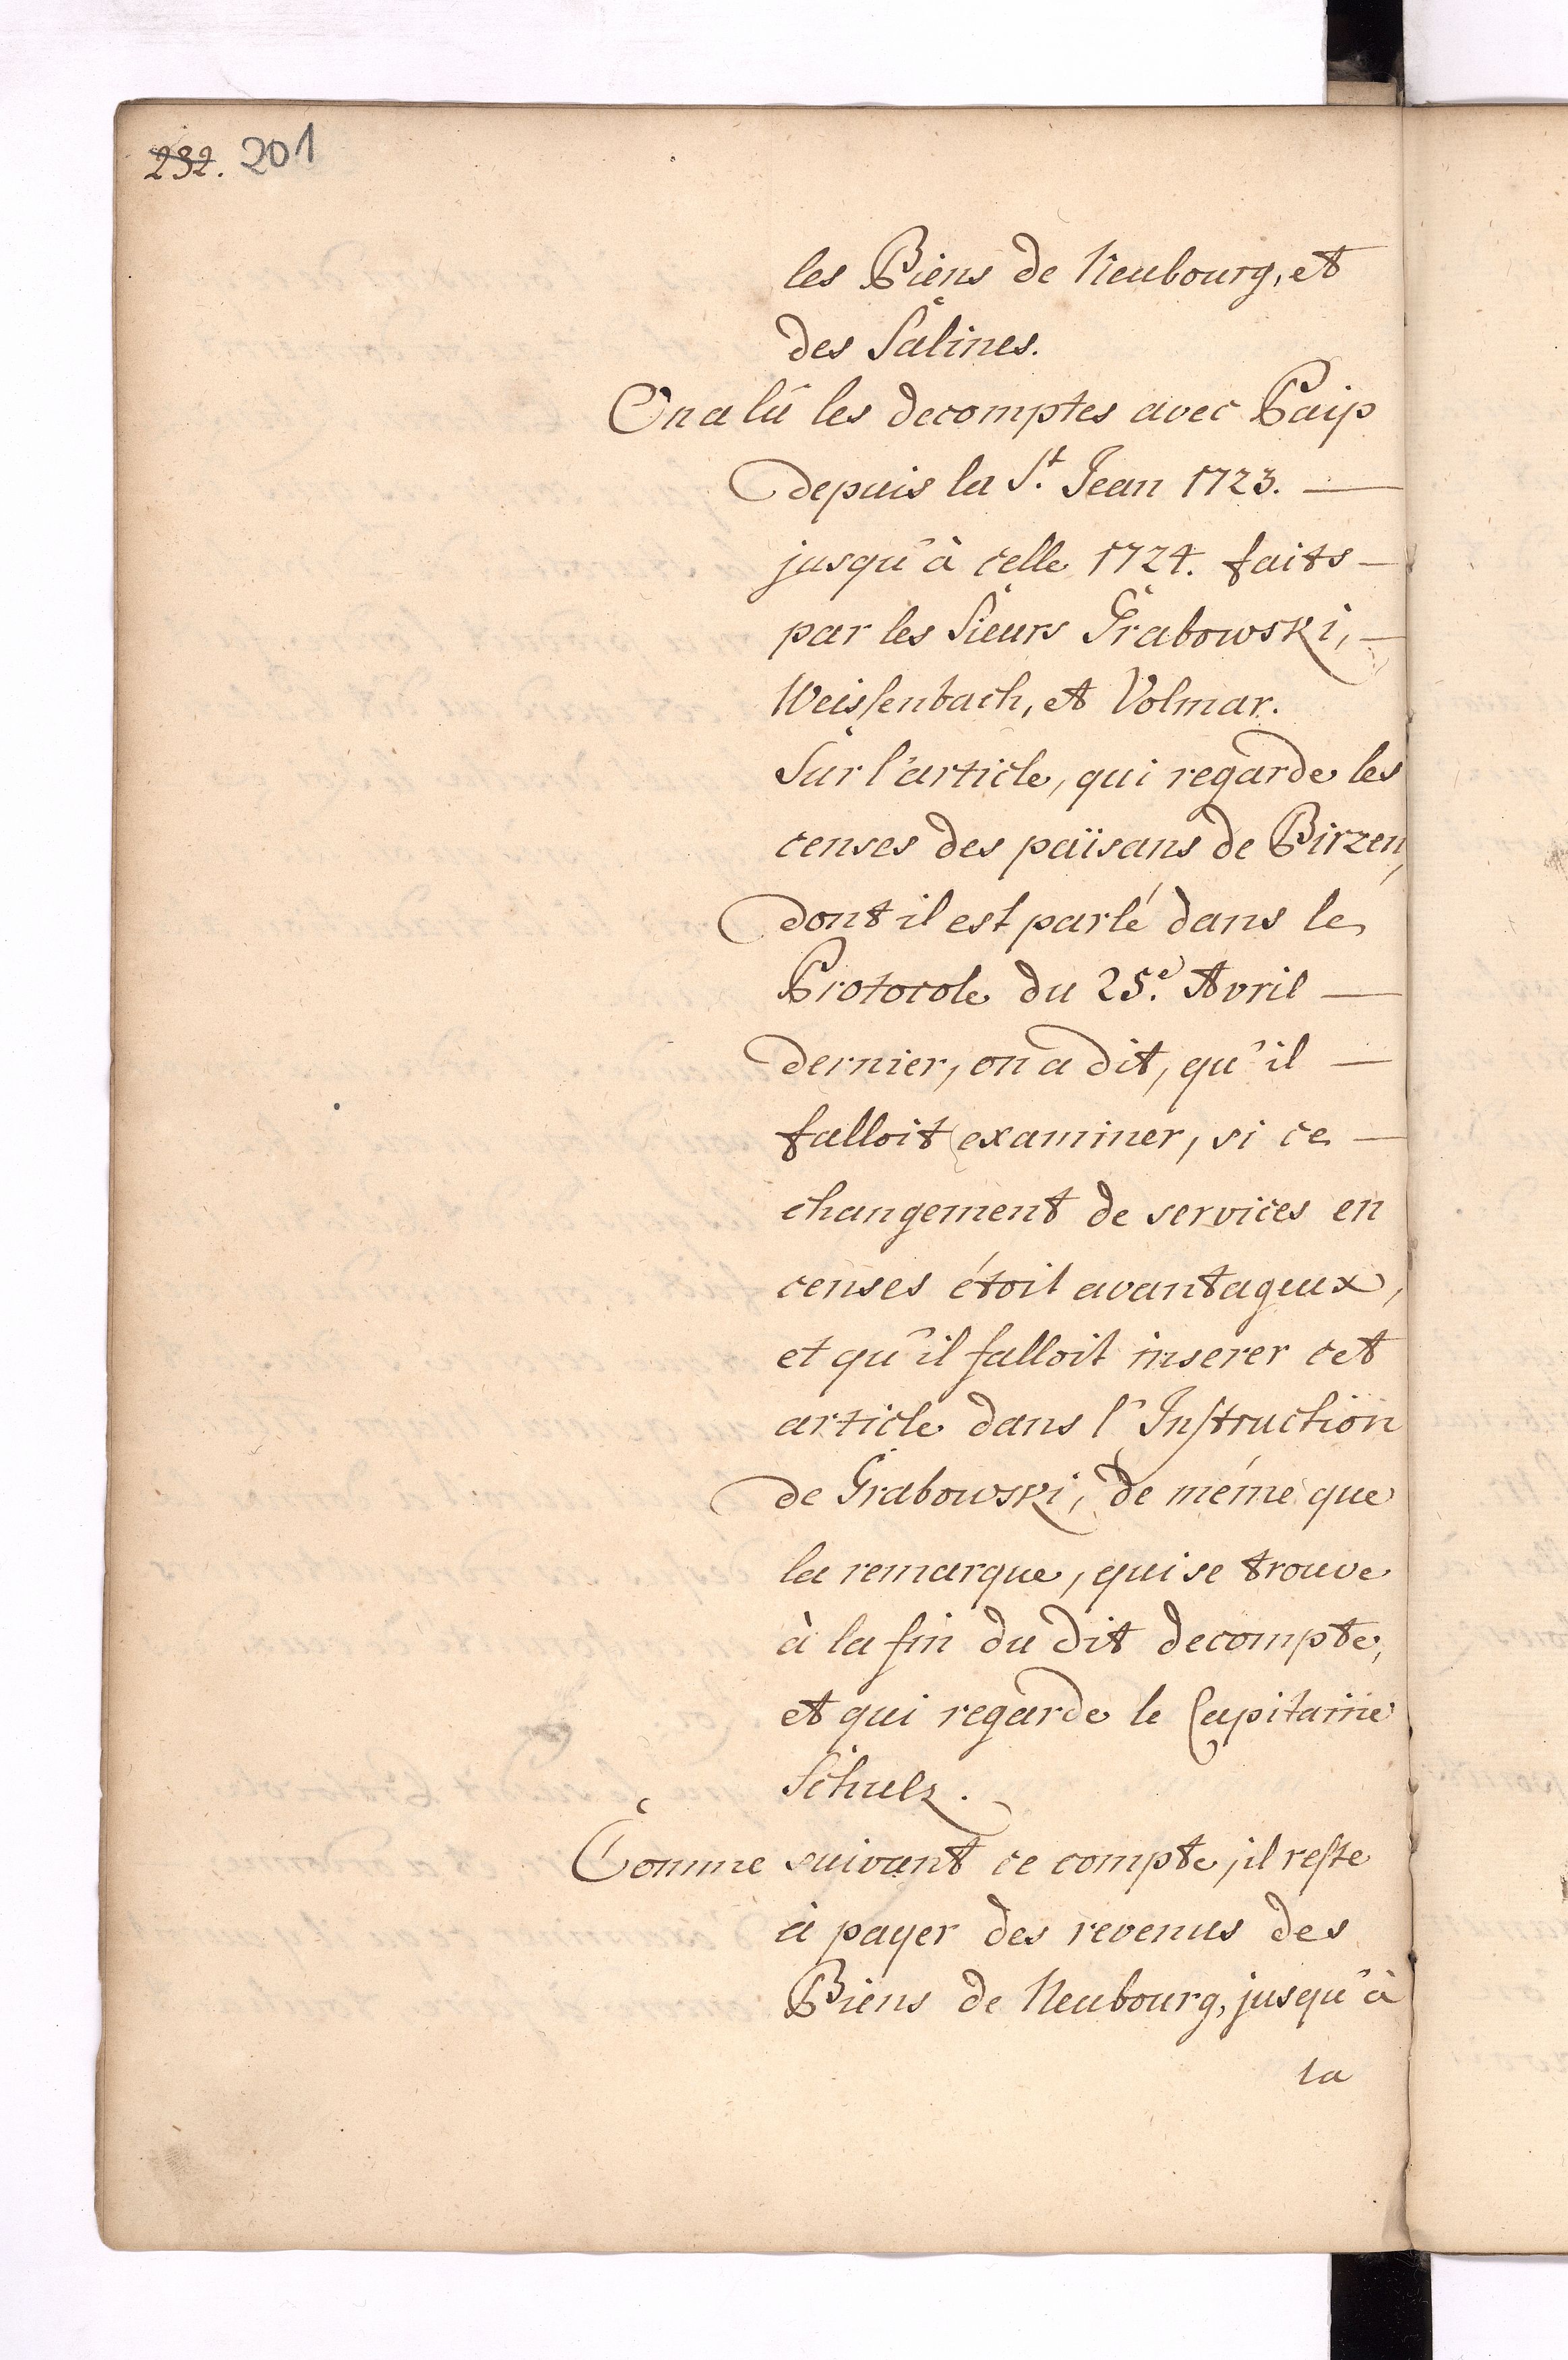 232. 201
les Biens de Neubourg, et
des Salines.
On a lû les decomptes avec Paip
depuis la St. Jean 1723. —
jusqu'à celle 1724. faits —
par les Sieurs Grabowski, —
Weissenbach, et Volmar.
Sur l'article, qui regarde les
censes des païsans de Birzen,
dont il est parlé dans le
Protocole du 25.e Avril —
dernier, on a dit, qu'il —
falloit examiner, si ce —
changement de services en
censes étoit avantageux,
et qu'il falloit inserer cet
article dans l'Instruction
de Grabowski, de méme que
la remarque, qui se trouve
à la fin du dit decompte,
et qui regarde le Capitaine
Schulz.
Comme suivant ce compte, il reste
à payer des revenus des
Biens de Neubourg, jusqu'à
la